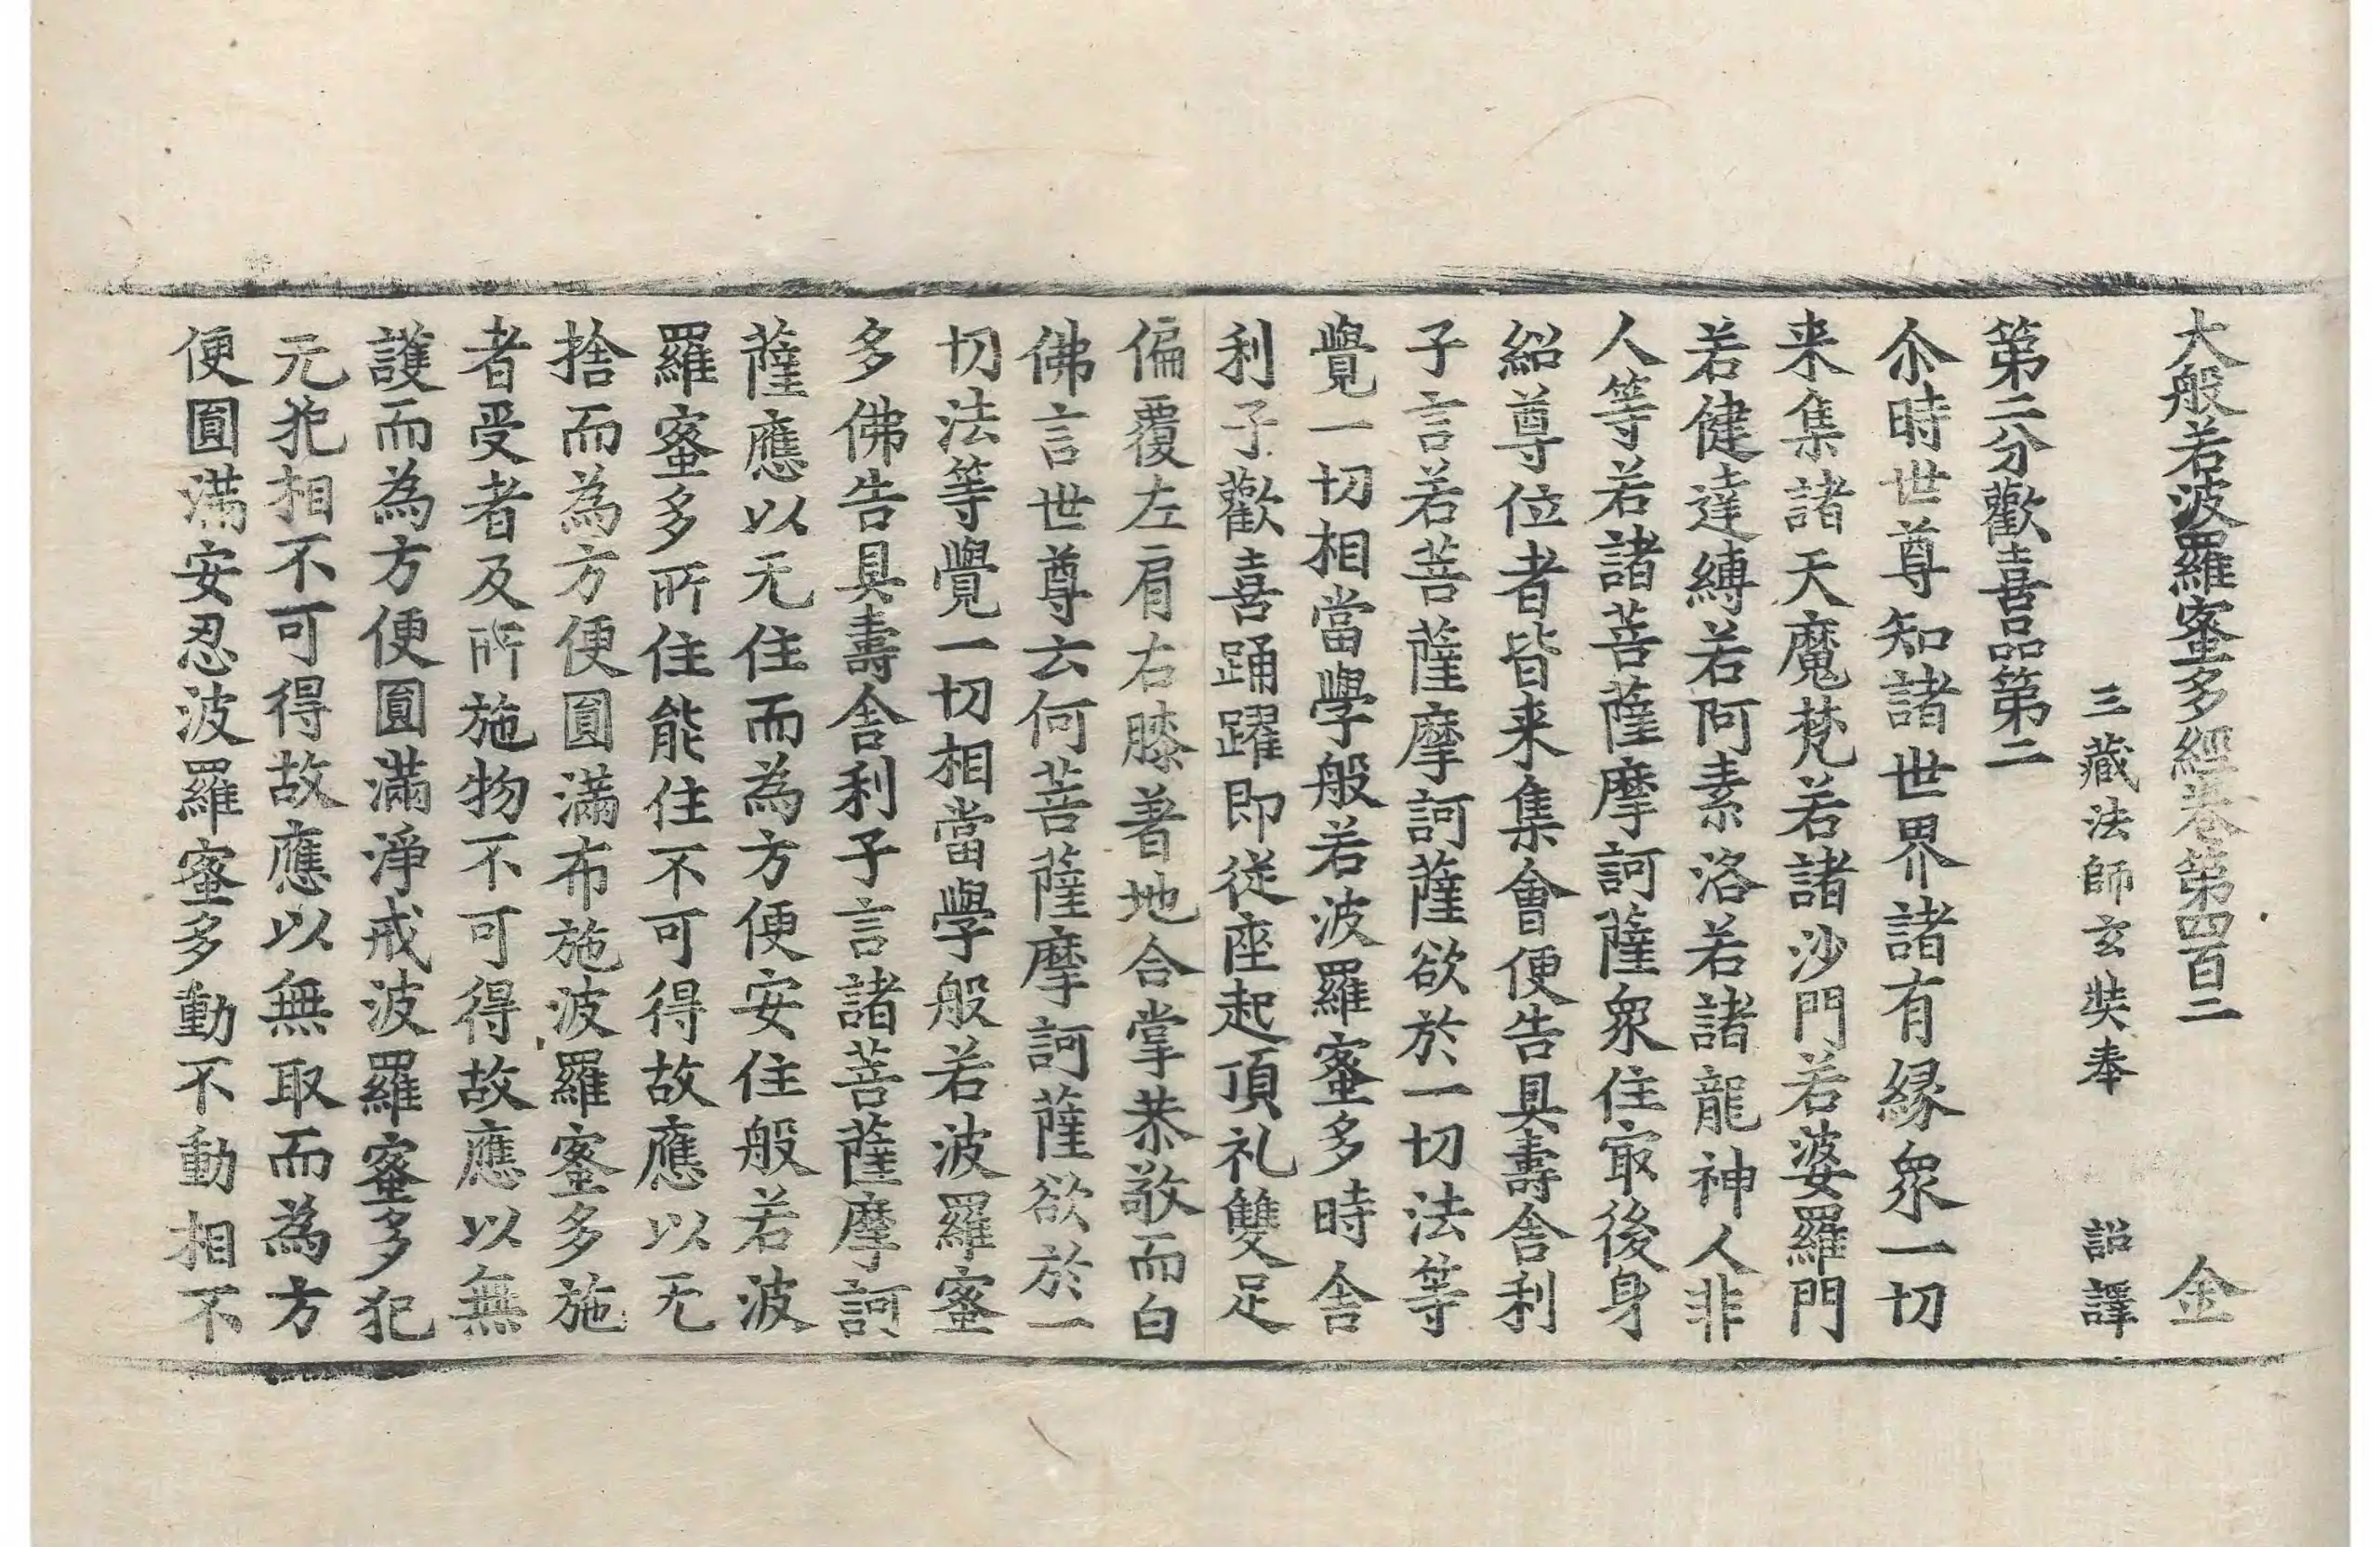 大般若波羅蜜多經卷第四百二　金
三藏法師玄奘奉　詔譯
第二分歡喜品第二
尒時世尊知諸世界諸有緣衆一切
来集諸天魔梵若諸沙門若婆羅門
若健達縛若阿素洛若諸龍神人非
人等若諸菩薩摩訶薩衆住㝡後身
紹尊位者皆来集會便告具壽舍利
子言若菩薩摩訶薩欲於一切法等
覺一切相當學般若波羅蜜多時舍
利子歡喜踊躍即從座起頂礼雙足
偏覆左肩右膝著地合掌恭敬而白
佛言世尊云何菩薩摩訶薩欲於一
切法等覺一切相當學般若波羅蜜
多佛告具壽舍利子言諸菩薩摩訶
薩應以无住而為方便安住般若波
羅蜜多所住能住不可得故應以无
捨而為方便圓滿布施波羅蜜多施
者受者及所施物不可得故應以無
護而為方便圓滿淨戒波羅蜜多犯
无犯相不可得故應以無取而為方
便圓滿安忍波羅蜜多動不動相不